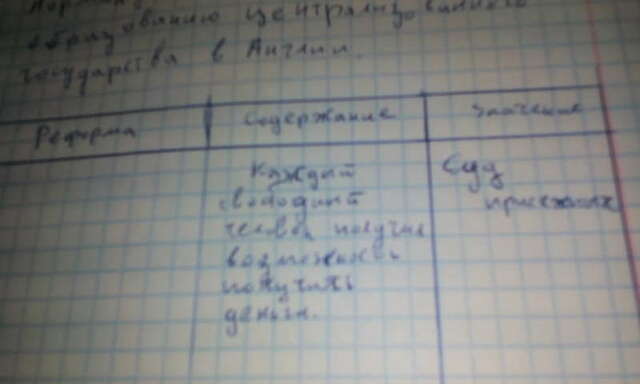 образованию централизованного
государства в Англии.
Реформа Содержание Значение
Каждый Суд
свободный присяжных
человек получил
возможность
получить
деньги.